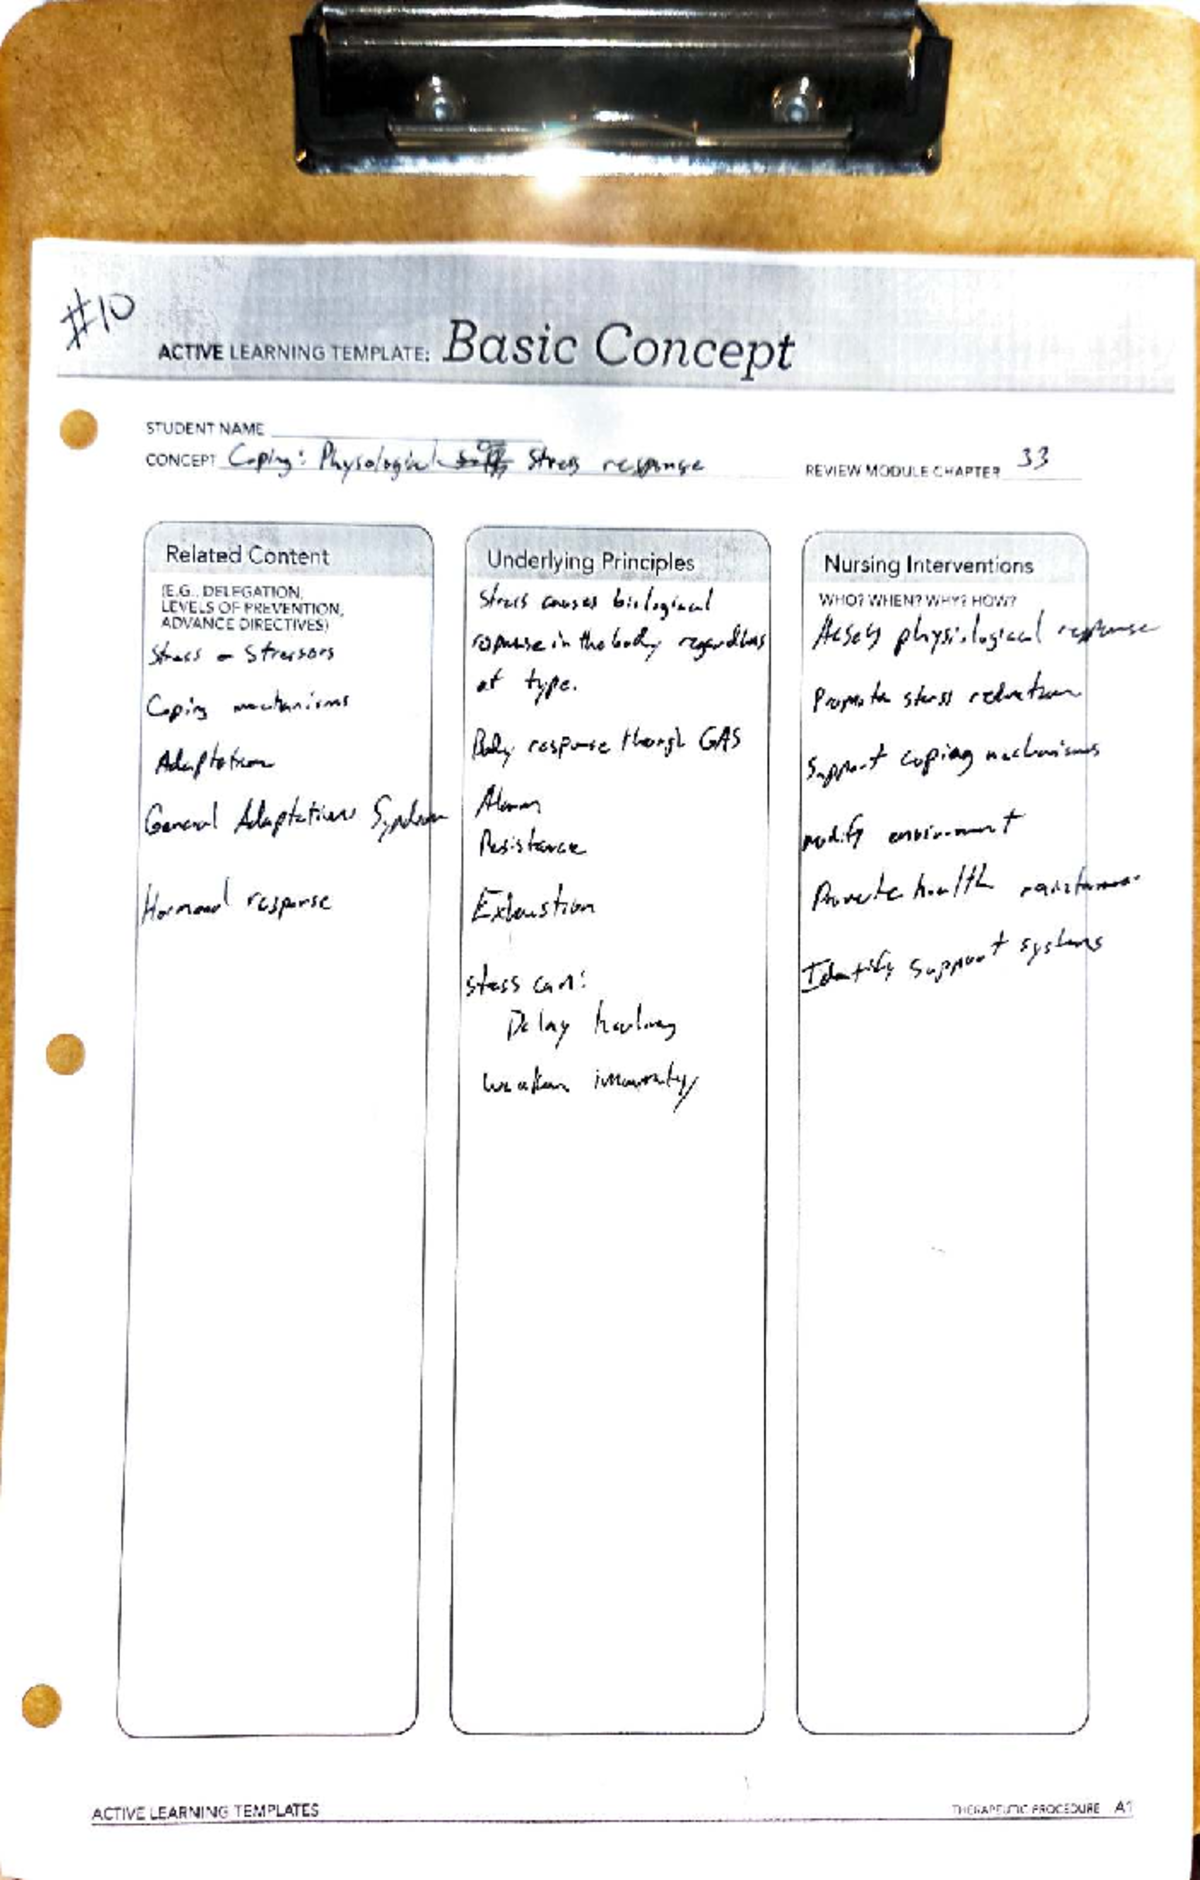 #10
ACTIVE LEARNING TEMPLATE: Basic Concept
STUDENT NAME
CONCEPT Coping: Physological Stress response
REVIEW MODULE CHAPTER 33
Related Content
(E.G., DELEGATION,
LEVELS OF PREVENTION,
ADVANCE DIRECTIVES)
Stress - Stressors
Coping mechanisms
Adaptation
General Adaptations Syndrom
response
Underlying Principles
Stress causes biological
response in the body regardless
of type.
Body response though GAS
Alarm
Resistance
Exhaustion
stess can:
Delay healing
weaken immunity
Nursing Interventions
WHO? WHEN? WHY? HOW?
Assess physiological response
Promote stress reduction
Support coping mechanisms
modify environment
Promote health maintenance
Identify support systems
ACTIVE LEARNING TEMPLATES
THERAPEUTIC PROCEDURE A1